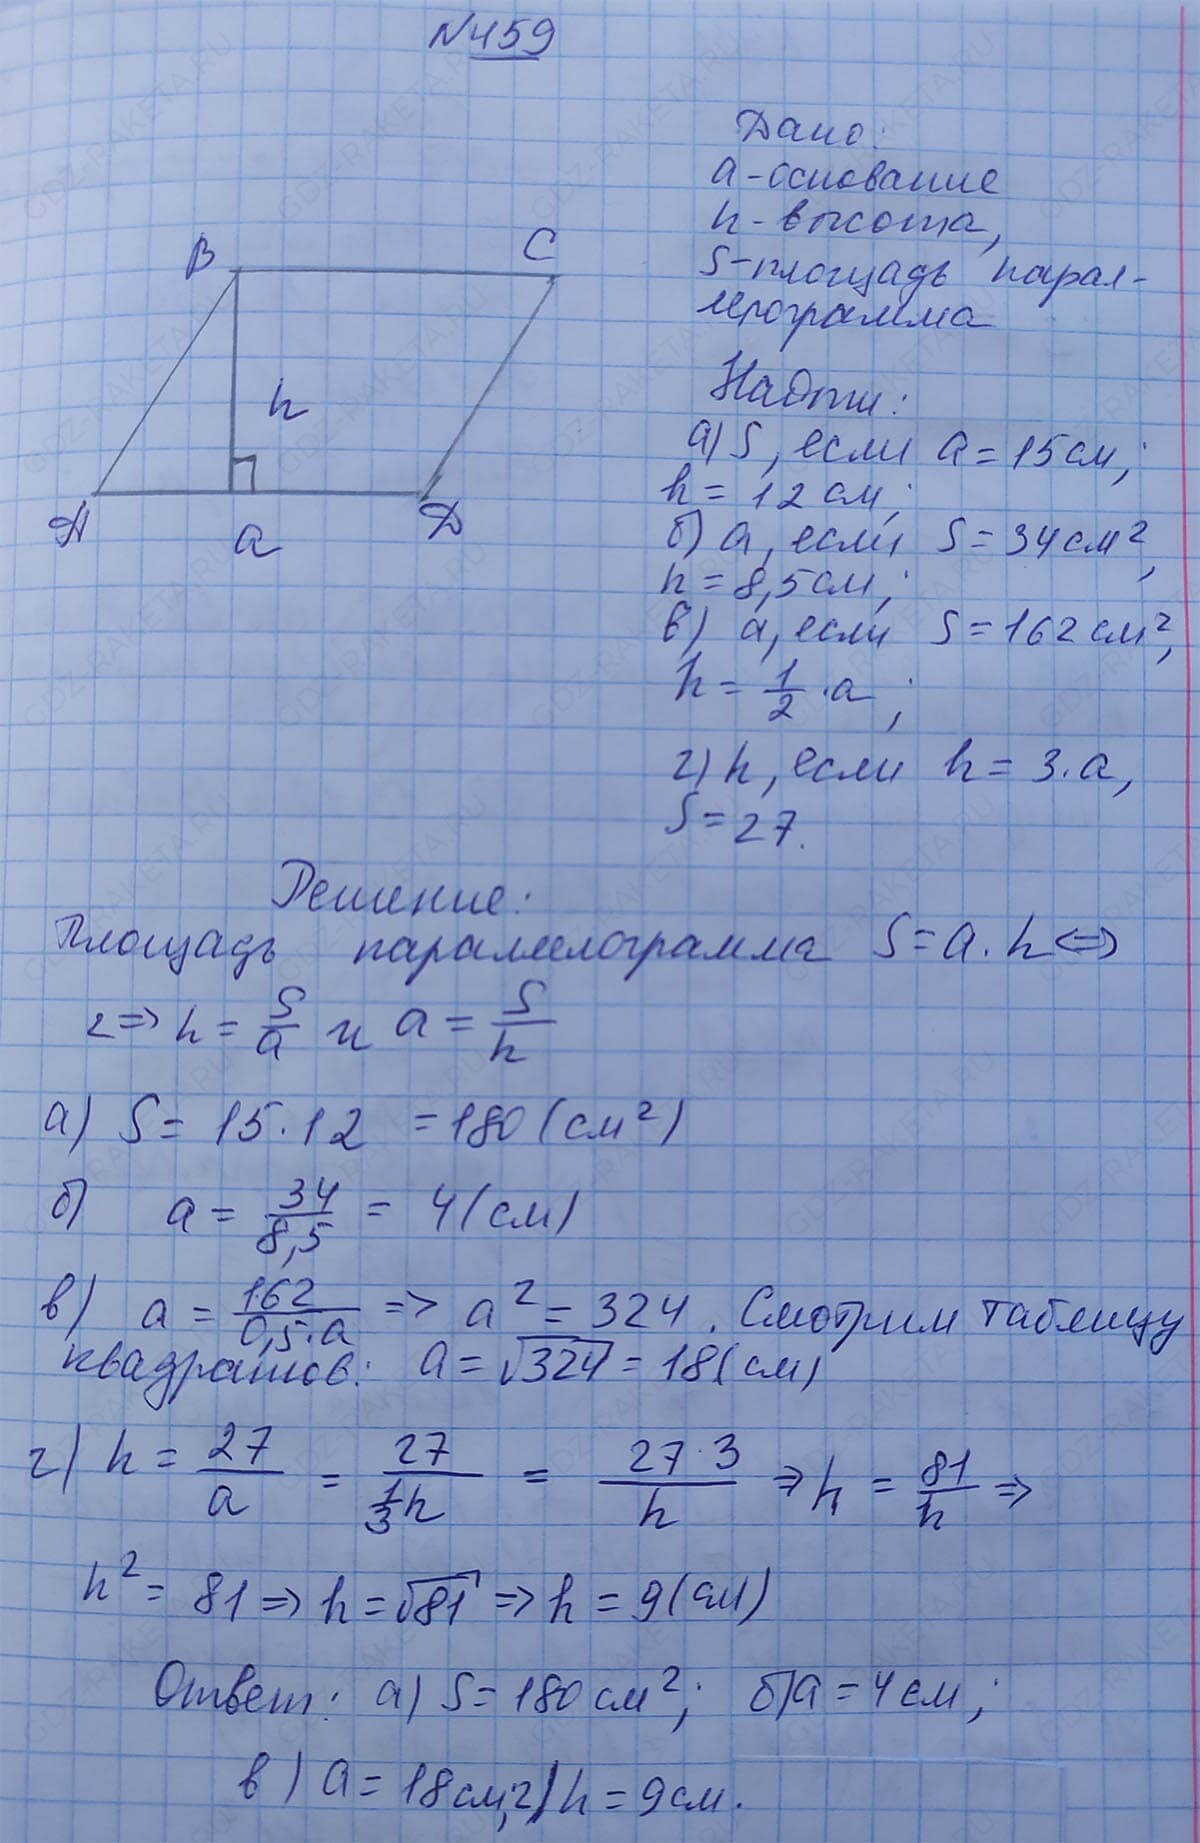 N459
Дано:
a - основание
h - высота,
S - площадь парал-
лерограмма
B C
h
A a D
Найти:
а) S, если a = 15 см;
h = 12 см;
б) a, если S = 34 см²,
h = 8,5 см;
в) a, если S = 162 см²,
h = 1/2 · a;
г) h, если h = 3·a,
S = 27.
Решение:
Площадь параллелограмма S = a · h <=>
<=> h = S/a и a = S/h
а) S = 15 · 12 = 180 (см²)
б) a = 34/8,5 = 4 (см)
в) a = 162/0,5·a => a² = 324. Смотрим таблицу
квадратов: a = √324 = 18 (см)
г) h = 27/a = 27/(1/3 h) = 27·3/h => h = 81/h =>
h² = 81 => h = √81 => h = 9 (см)
Ответ: а) S = 180 см²; б) a = 4 см;
в) a = 18 см, г) h = 9 см.
GDZ-RAKETA.RU